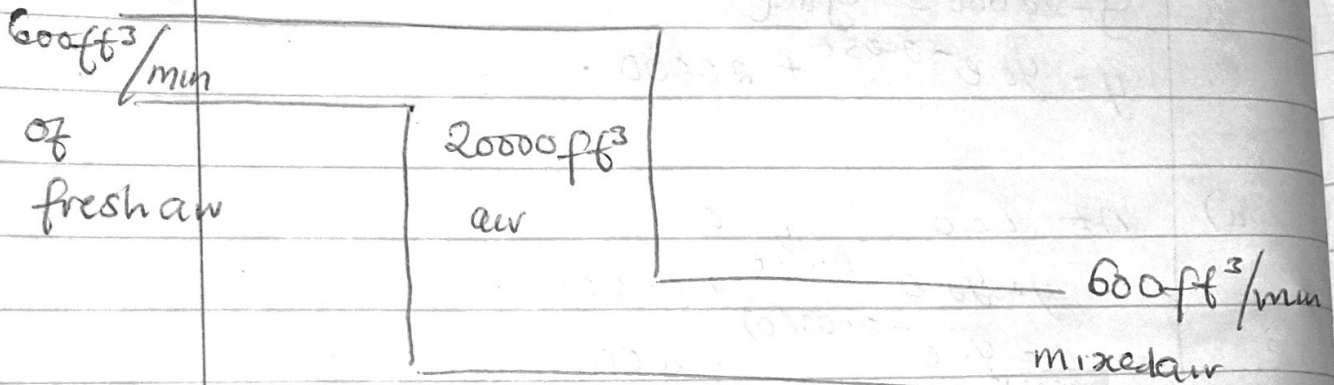 600ft³/min
of
fresh air
20000 ft³
air
600ft³/min
mixed air